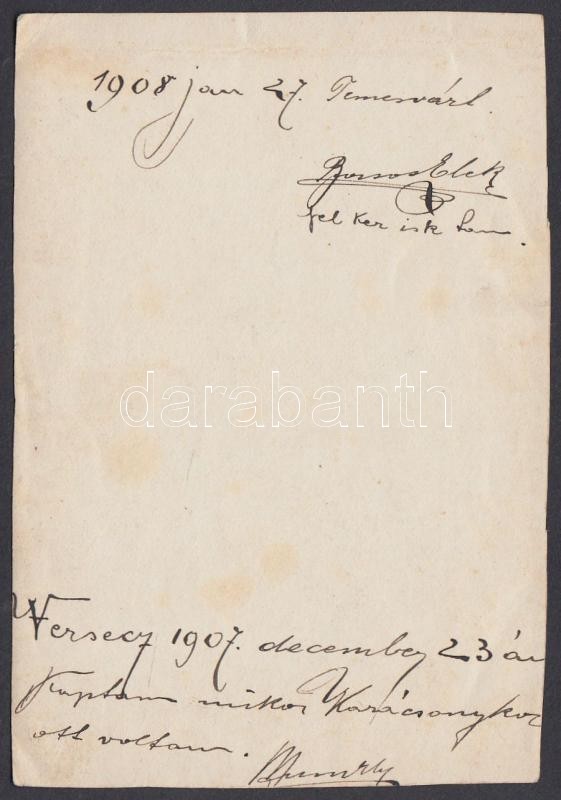 1908 jan 27. Temesvárt.
Bossos Elek
fel ker isk tan.
darabanth
Versecz 1907. december 23 án
Kaptam mikor Karácsonykor
ott voltam.